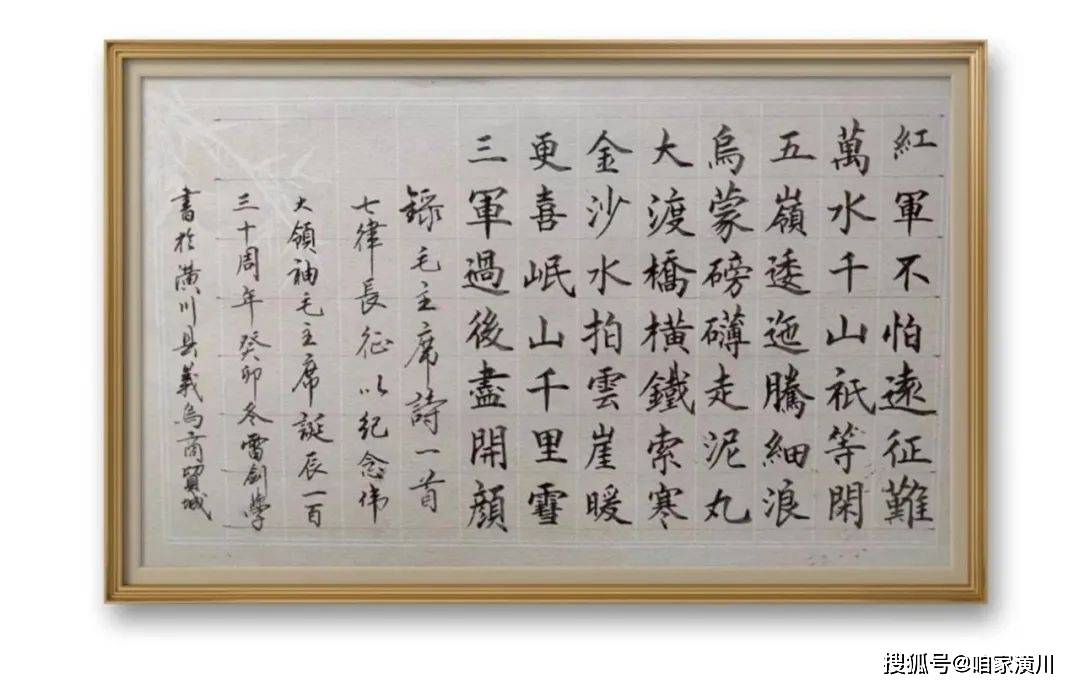 紅軍不怕遠征難
萬水千山祇等閑
五嶺逶迤騰細浪
烏蒙磅礴走泥丸
大渡橋橫鐵索寒
金沙水拍雲崖暖
更喜岷山千里雪
三軍過後盡開顔
錄毛主席詩一首
七律長征以紀念偉
大領袖毛主席誕辰一百
三十周年癸卯冬雷剑學
書於潢川县義烏商貿城
搜狐号@咱家潢川